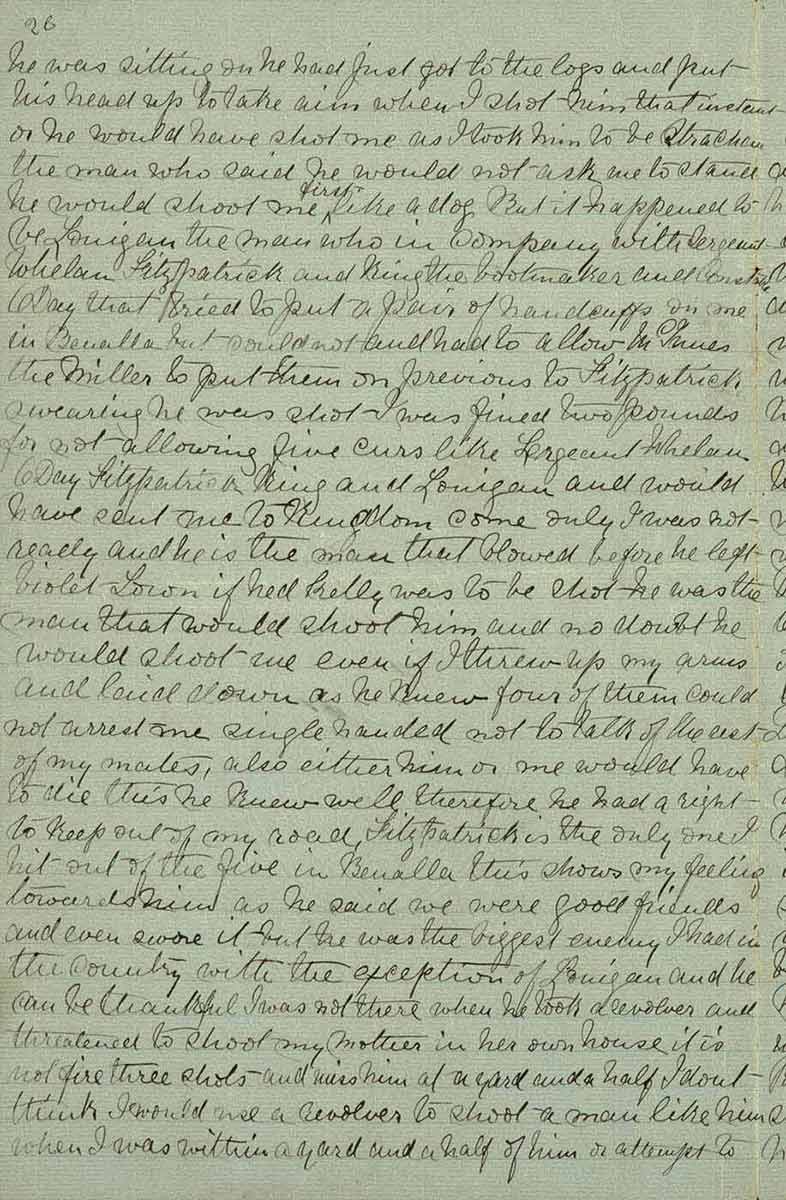 26
he was sitting on he had just got to the logs and put
his head up to take aim when I shot him that instant
or he would have shot me as I took him to be Strachan
the man who said he would not ask me to stand
he would shoot me first like a dog But it happened to
be Lonigan the man who in company with Sergeant
Whelan Fitzpatrick and King the bootmaker and Constable
O Day that tried to put a pair of handcuffs on me
in Benalla but could not and had to allow McInnes
the Miller to put them on previous to Fitzpatrick
swearing he was shot I was fined two pounds
for not allowing five curs like Sergeant Whelan
O Day Fitzpatrick King and Lonigan and would
have sent me to Kingdom come only I was not
ready and he is the man that blowed before he left
Violet Town if Ned Kelly was to be shot he was the
man that would shoot him and no doubt he
would shoot me even if I threw up my arms
and laid down as he knew four of them could
not arrest me single handed not to talk of the rest
of my mates, also either him or me would have
to die this he knew well therefore he had a right
to keep out of my road, Fitzpatrick is the only one I
hit out of the five in Benalla this shows my feeling
towards him as he said we were good friends
and even swore it but he was the biggest enemy I had in
the country with the exception of Lonigan and he
can be thankful I was not there when he took a revolver and
threatened to shoot my mother in her own house it is
not fire three shots and miss him at a yard and a half I dont
think I would use a revolver to shoot a man like him
when I was within a yard and a half of him or attempt to